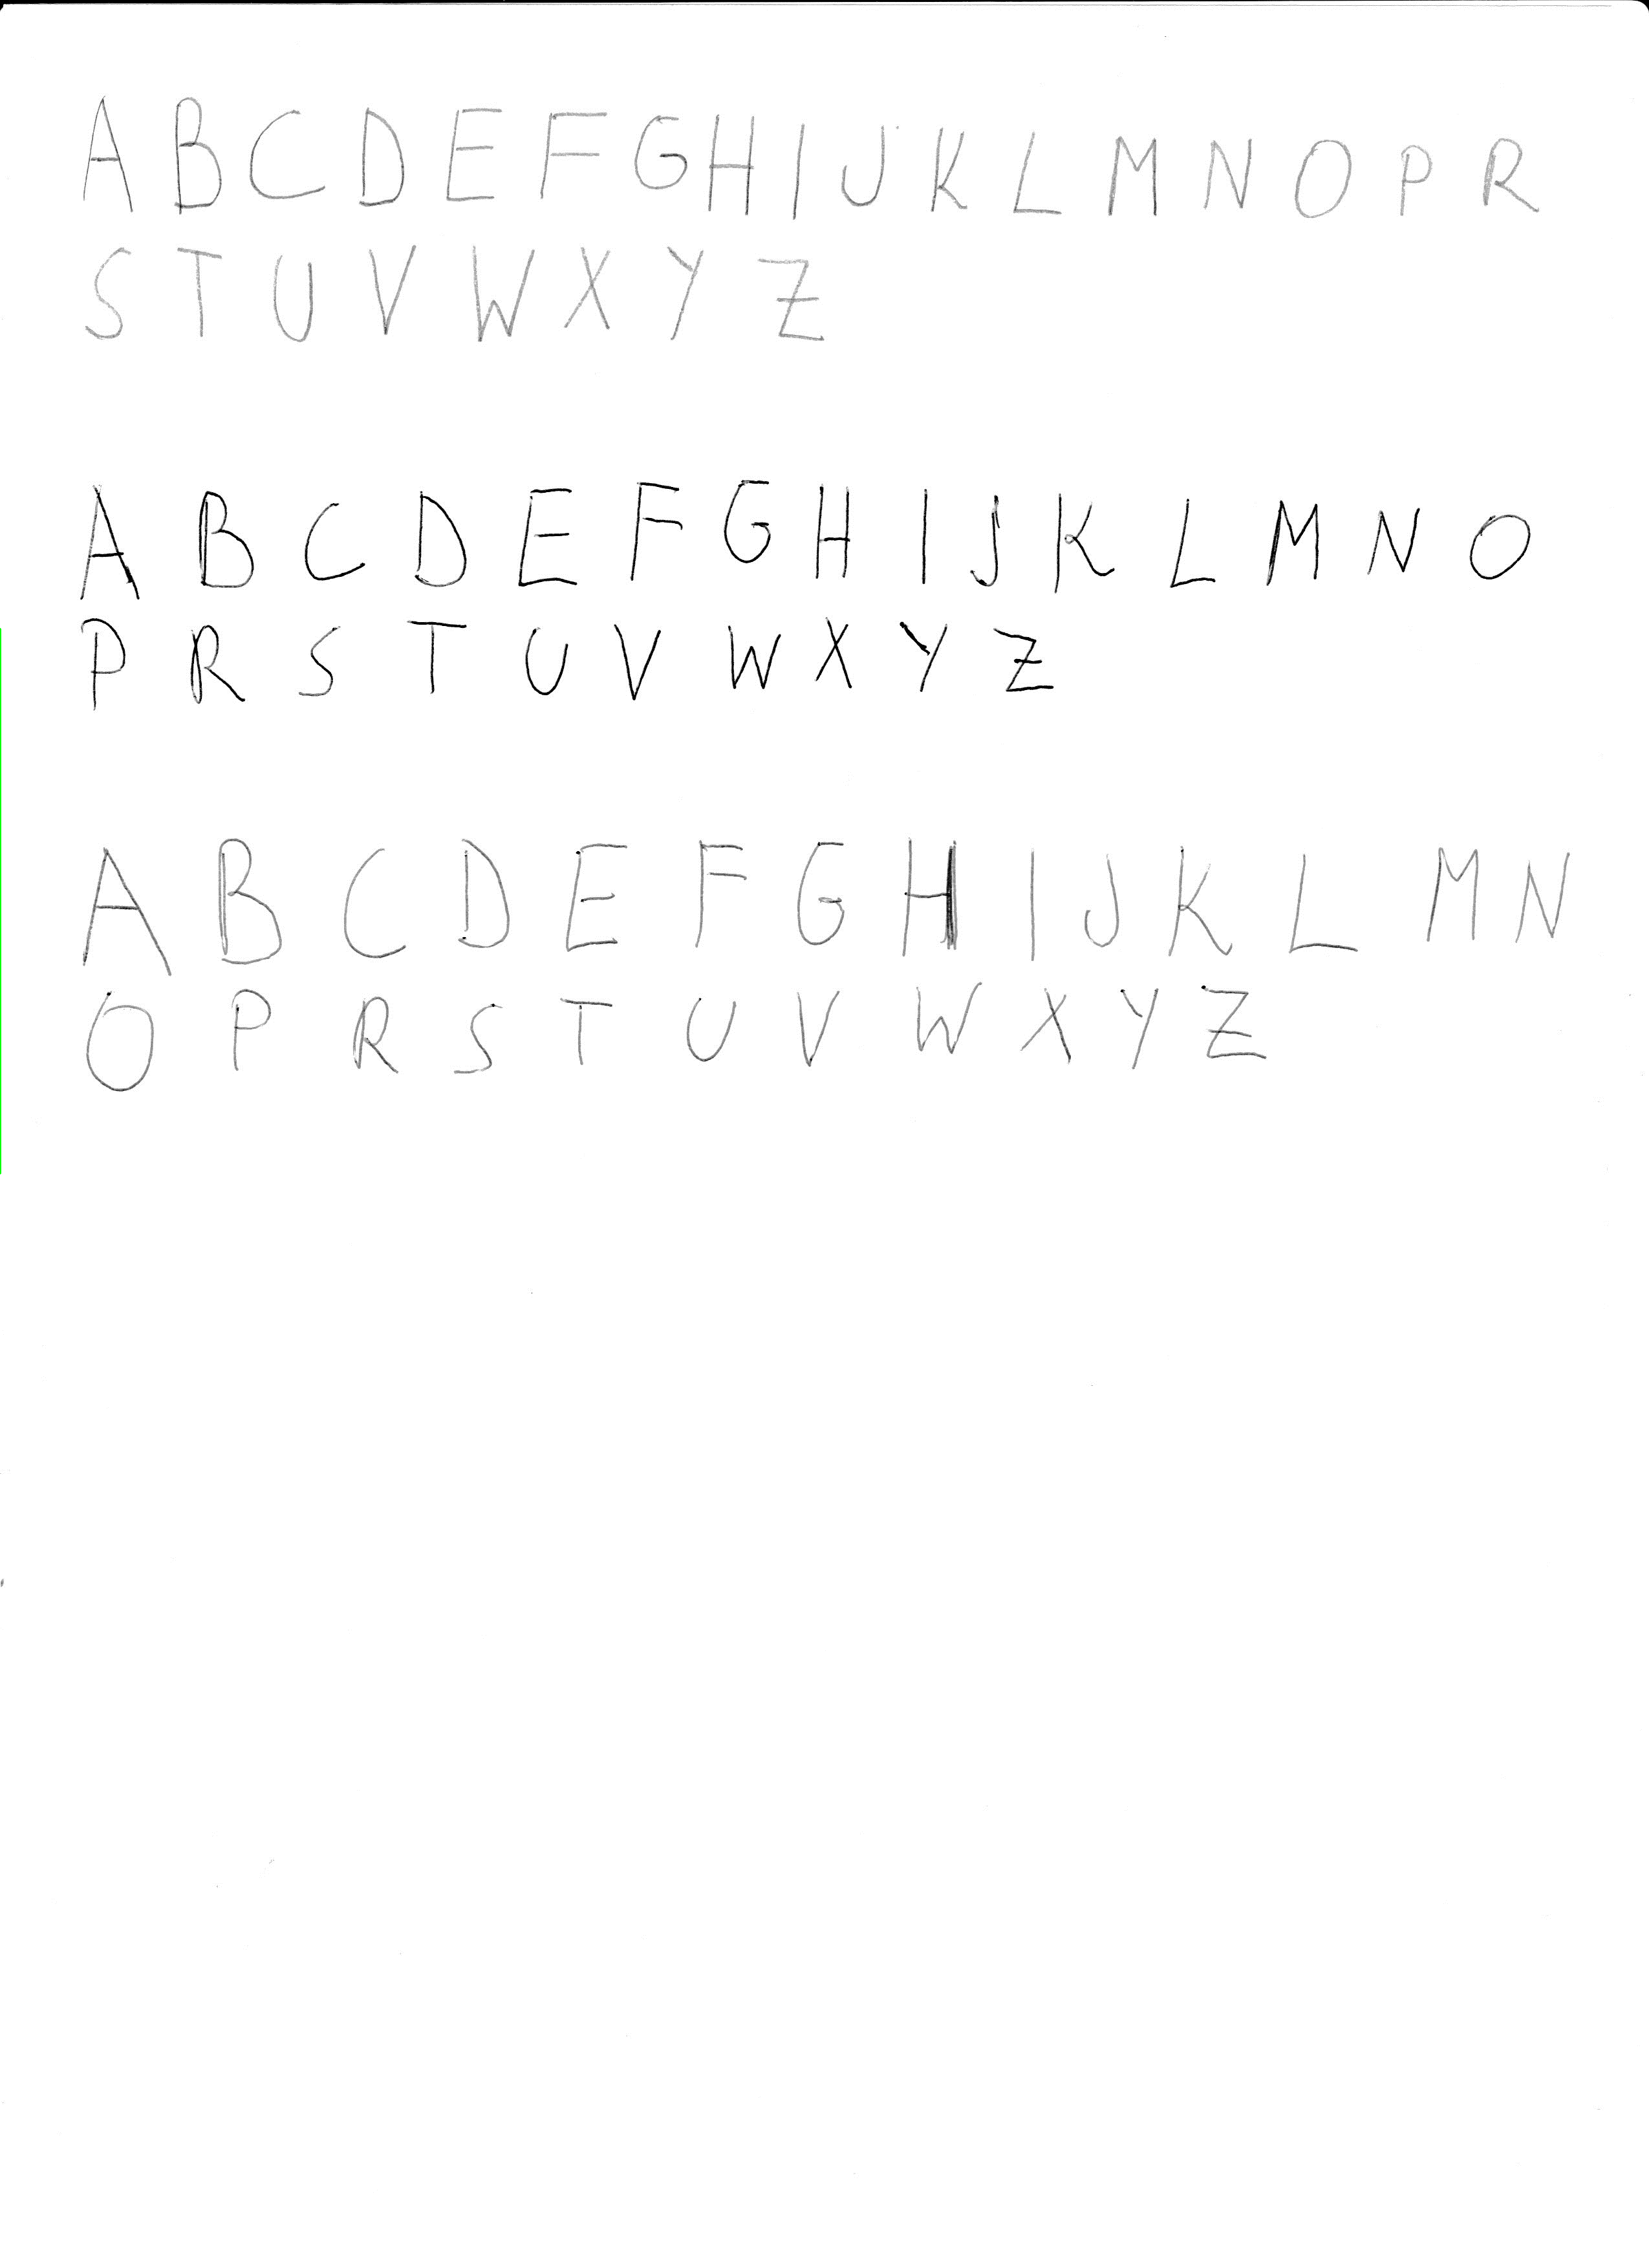 A B C D E F G H I J K L M N O P R
S T U V W X Y Z
A B C D E F G H I J K L M N O
P R S T U V W X Y Z
A B C D E F G H I J K L M N
O P R S T U V W X Y Z